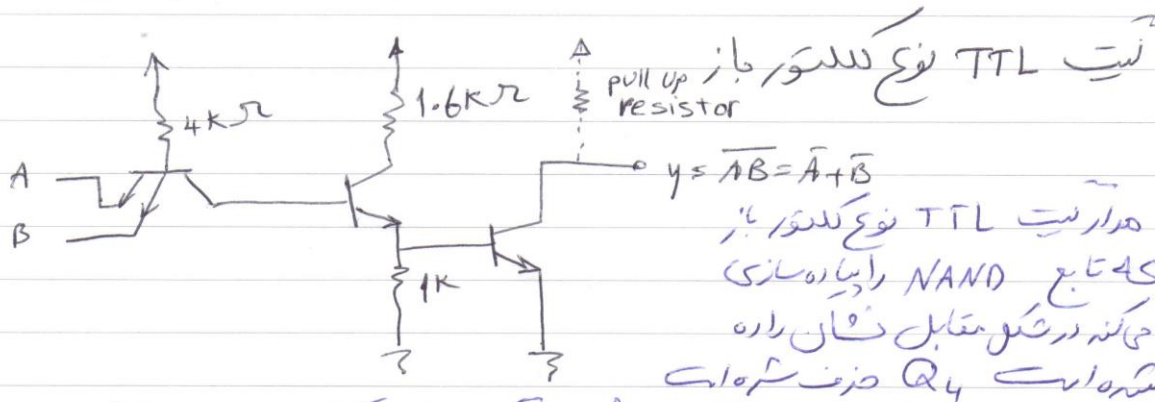 گیت TTL نوع کلکتور باز
pull up
resistor
4kΩ
1.6kΩ
A
B
1k
y = \overline{AB} = Ā+B̄
مدار گیت TTL نوع کلکتور باز
که تابع NAND را پیاده سازی
می کند در شکل مقابل نشان داده
شده است Q4 حذف شده است